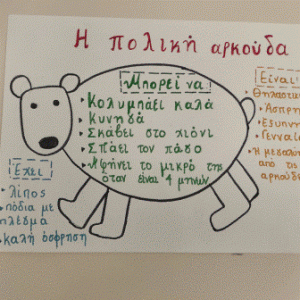 Η πολική αρκούδα
Μπορεί να:
Κολυμπάει καλά
Κυνηγά
Σκάβει στο χιόνι
Σπάει τον πάγο
Αφήνει το μικρό της
όταν είναι 4 μηνών
Είναι:
Θηλαστικ
Άσπρη
Έξυπνη
Γενναί
Η μεγαλύ
από τις
αρκούδε
Έχει
λίπος
πόδια με
πλέγμα
καλή όσφρηση